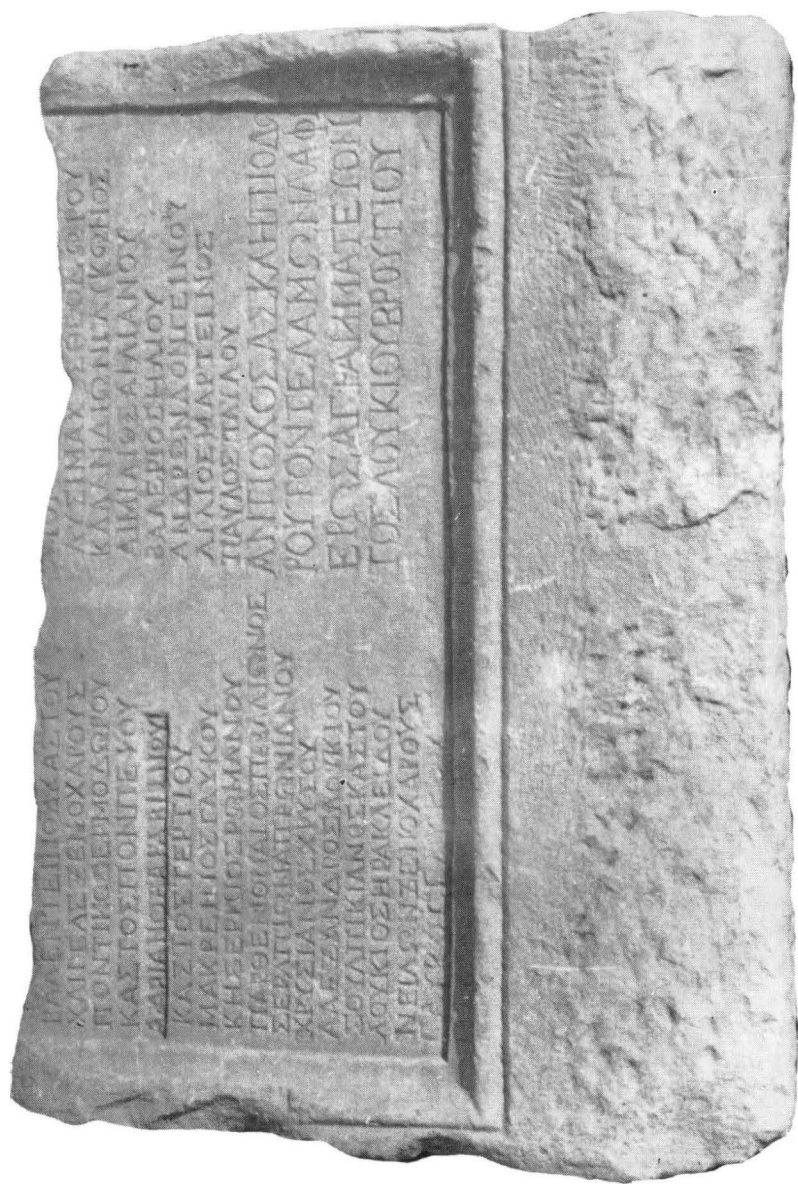 ΧΑΙΡΕΑΣΞΕΝΟΧΑΡΟΥΣ
ΠΟΝΤΙΚΟΣΕΡΜΟΔΩΡΟΥ
ΚΑΣΤΟΣΠΟΝΠΕΙΟΥ
ΚΑΣΤΟΣΤΕΡΤΙΟΥ
ΜΑΚΡΕΙΝΟΣΓΛΥΚΟΥ
ΚΗΣΕΡΚΙΟΣΡΩΜΑΝΟΥ
ΠΑΡΘΕΝΟΠΑΙΟΣΠΩΛΛΙΩΝΟΣ
ΣΕΡΑΠΙΩΝΑΠΡΩΝΙΑΝΟΥ
ΧΡΥΣΙΑΝΟΣΧΡΥΤΟΥ
ΑΛΕΞΑΝΔΡΟΣΛΟΥΚΙΟΥ
ΣΟΥΛΠΙΚΙΑΝΟΣΚΑΣΤΟΥ
ΛΟΥΚΙΟΣΗΡΑΚΛΕΙΔΟΥ
ΝΕΙΛΩΝΞΕΝΟΧΑΡΟΥΣ
ΚΛΑΝΔΙΩΝΓΛΥΚΩΝΟΣ
ΑΙΜΙΛΙΟΣΑΙΛΙΑΝΟΥ
ΒΑΛΕΡΙΟΣΗΛΙΟΥ
ΑΝΔΡΩΝΛΟΝΓΕΙΝΟΥ
ΑΙΛΙΟΣΜΑΡΤΕΙΝΟΣ
ΠΑΥΛΟΣΠΑΥΛΟΥ
ΑΝΤΙΟΧΟΣΑΣΚΛΗΠΙΟΔΩ
ΡΟΥΤΟΝΤΕΛΑΜΩΝΑΑΦ
ΕΡΩΣΑΓΡΑΜΜΑΤΕΥΟΝ
ΤΟΣΛΟΥΚΙΟΥΒΡΟΥΤΙΟΥ